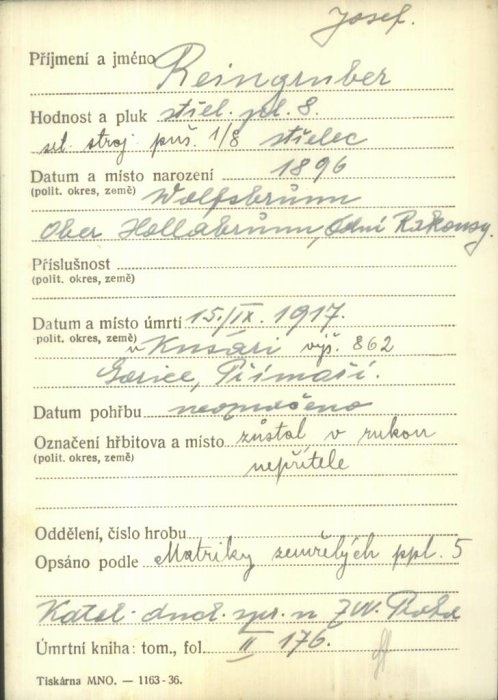 Josef.
Příjmení a jméno Reingruber
Hodnost a pluk střel. pl. 8.
set. stroj. puš. 1/8 střelec
Datum a místo narození 1896
(polit. okres, země) Wolfsbrunn
Ober Hollabrunn, Dolní Rakousy.
Příslušnost
(polit. okres, země)
Datum a místo úmrtí 15./IX. 1917.
polit. okres, země) v Kusári výš. 862
Gorice, Přímoří.
Datum pohřbu neoznačeno
Označení hřbitova a místo zůstal v rukou
(polit. okres, země) nepřítele
Oddělení, číslo hrobu
Opsáno podle Matriky zemřelých ppl. 5
Katol. duch. spr. n ZVV. Praha
Úmrtní kniha: tom., fol. II 176.
Tiskárna MNO. — 1163-36.